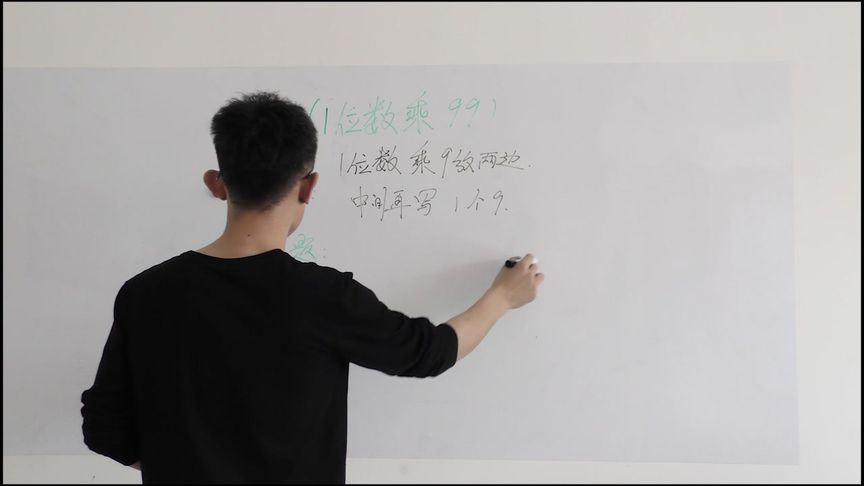 (1位数乘99)
1位数乘9放两边.
中间再写1个9.
题: